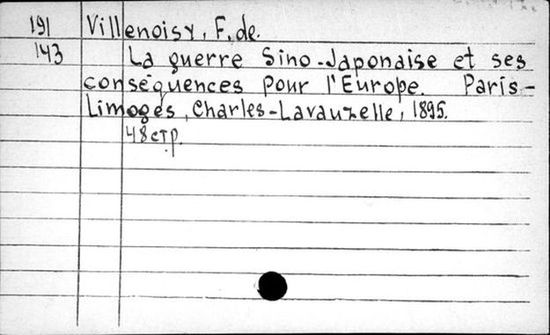 191 Villenoisy, F. de.
143 La guerre Sino-Japonaise et ses
conséquences pour l'Europe. Paris-
Limoges, Charles-Lavauzelle, 1895.
48 стр.